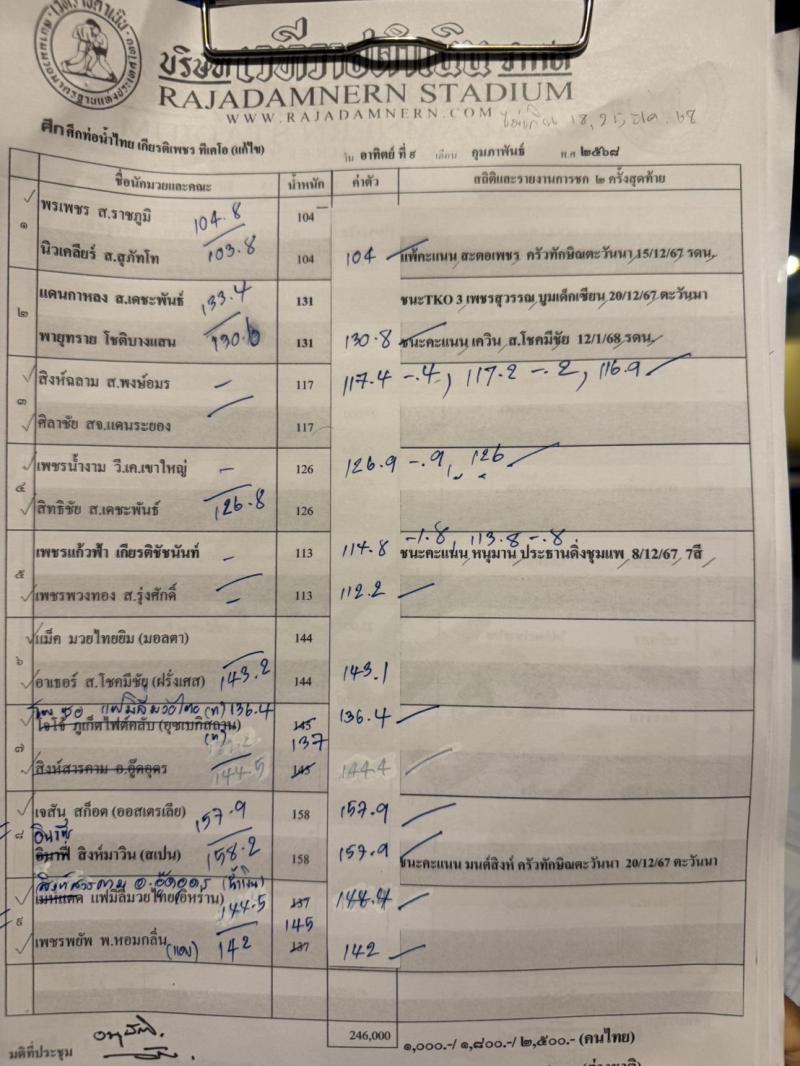 บริษัท เวทีราชดำเนิน จำกัด
RAJADAMNERN STADIUM
WWW.RAJADAMNERN.COM
ศึก ศึกท่อน้ำไทย เกียรติเพชร ทีเคโอ (แก้ไข) วัน อาทิตย์ ที่ ๙ เดือน กุมภาพันธ์ พ.ศ ๒๕๖๘
ชื่อนักมวยและคณะ น้ำหนัก ค่าตัว สถิติและรายงานการชก ๒ ครั้งสุดท้าย
๑
พรเพชร ส.ราชภูมิ 104.8 104
นิวเคลียร์ ส.สุภัทโท 103.8 104 104 แพ้คะแนน สะตอเพชร ครัวทักษิณตะวันนา 15/12/67 รดน.
๒
แดนกาหลง ส.เดชะพันธ์ 133.4 131 ชนะTKO 3 เพชรสุวรรณ บูมเด็กเซียน 20/12/67 ตะวันนา
พายุทราย โชติบางแสน 130.6 131 130.8 ชนะคะแนน เควิน ส.โชคมีชัย 12/1/68 รดน.
๓
สิงห์ฉลาม ส.พงษ์อมร - 117 117.4 -.4, 117.2 -.2, 116.9
ศิลาชัย สจ.แดนระยอง 117
๔
เพชรน้ำงาม วี.เค.เขาใหญ่ - 126 126.9 -.9, 126
สิทธิชัย ส.เดชะพันธ์ 126.8 126
๕
-1.8, 113.8 -.8
เพชรแก้วฟ้า เกียรติชัชนันท์ - 113 114.8 ชนะคะแนน หนุมาน ประธานดิ่งชุมแพ 8/12/67 7สี
เพชรพวงทอง ส.รุ่งศักดิ์ - 113 112.2
๖
แม็ค มวยไทยยิม (มอลตา) 144
อาเธอร์ ส.โชคมีชัย (ฝรั่งเศส) 143.2 144 143.1
๗
แฟมิลี่มวยไทย (ท) 136.4 136.4
โจโจ้ ภูเก็ตไฟต์คลับ (อุซเบกิสถาน) 145
137
สิงห์สารคาม อ.อู๊ดอุดร 144.5 145 144.4
เจสัน สก็อต (ออสเตรเลีย) 157.9 158 157.9
๘
สิงห์มาวิน (สเปน) 158.2 158 157.9 ชนะคะแนน มนต์สิงห์ ครัวทักษิณตะวันนา 20/12/67 ตะวันนา
สิงห์สารคาม อ.อู๊ดอุดร (น้ำเงิน)
แฟมิลี่มวยไทย(อิหร่าน) 144.5 137 144.4
๙
145
เพชรพยัพ พ.หอมกลิ่น (แดง) 142 137 142
246,000 ๑,๐๐๐.-/ ๑,๘๐๐.-/ ๒,๕๐๐.- (คนไทย)
มติที่ประชุม